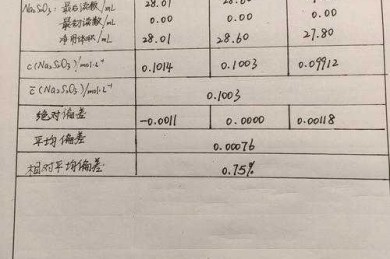 Na₂S₂O₃: 最后读数/mL 28.01 28.60 27.80
最初读数/mL 0.00 0.00 0.00
净用体积/mL 28.01 28.60 27.80
c(Na₂S₂O₃)/mol·L⁻¹ 0.1014 0.1003 0.09912
c̄(Na₂S₂O₃)/mol·L⁻¹ 0.1003
绝对偏差 -0.0011 0.0000 0.00118
平均偏差 0.00076
相对平均偏差 0.75%